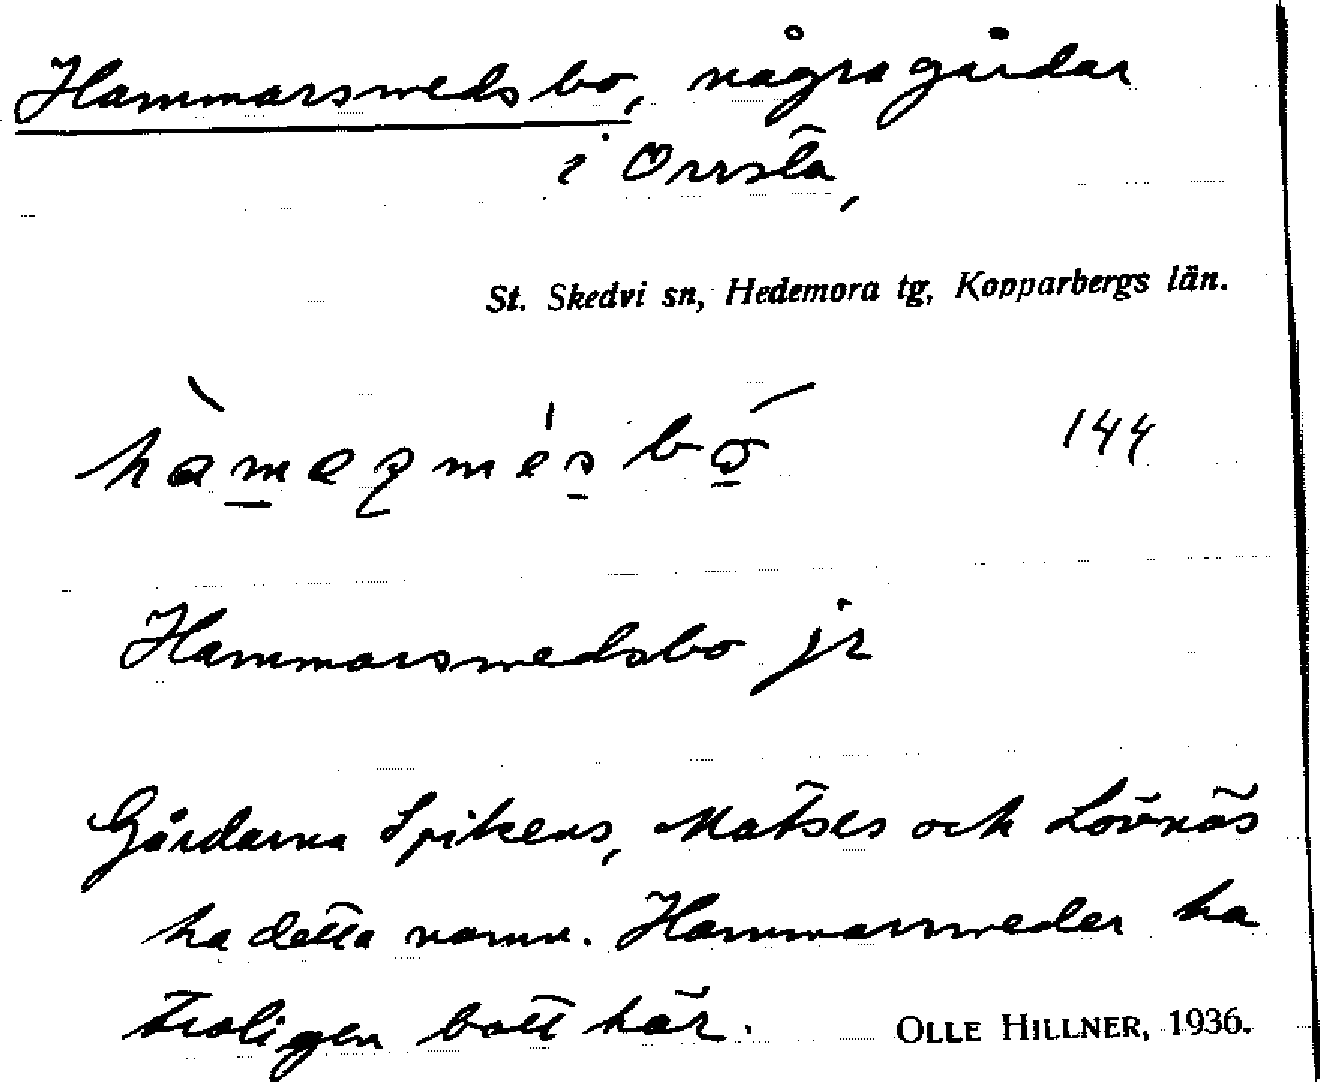 Hammarsmedsbo, några gårdar
i Orrsta,
St. Skedvi sn, Hedemora tg, Kopparbergs län.
144
Hammarsmedsbo jr
Gårdarna Spikens, Matses och Lövnäs
ha detta namn. Hammarsmeder ha
troligen bott här.
OLLE HILLNER, 1936.